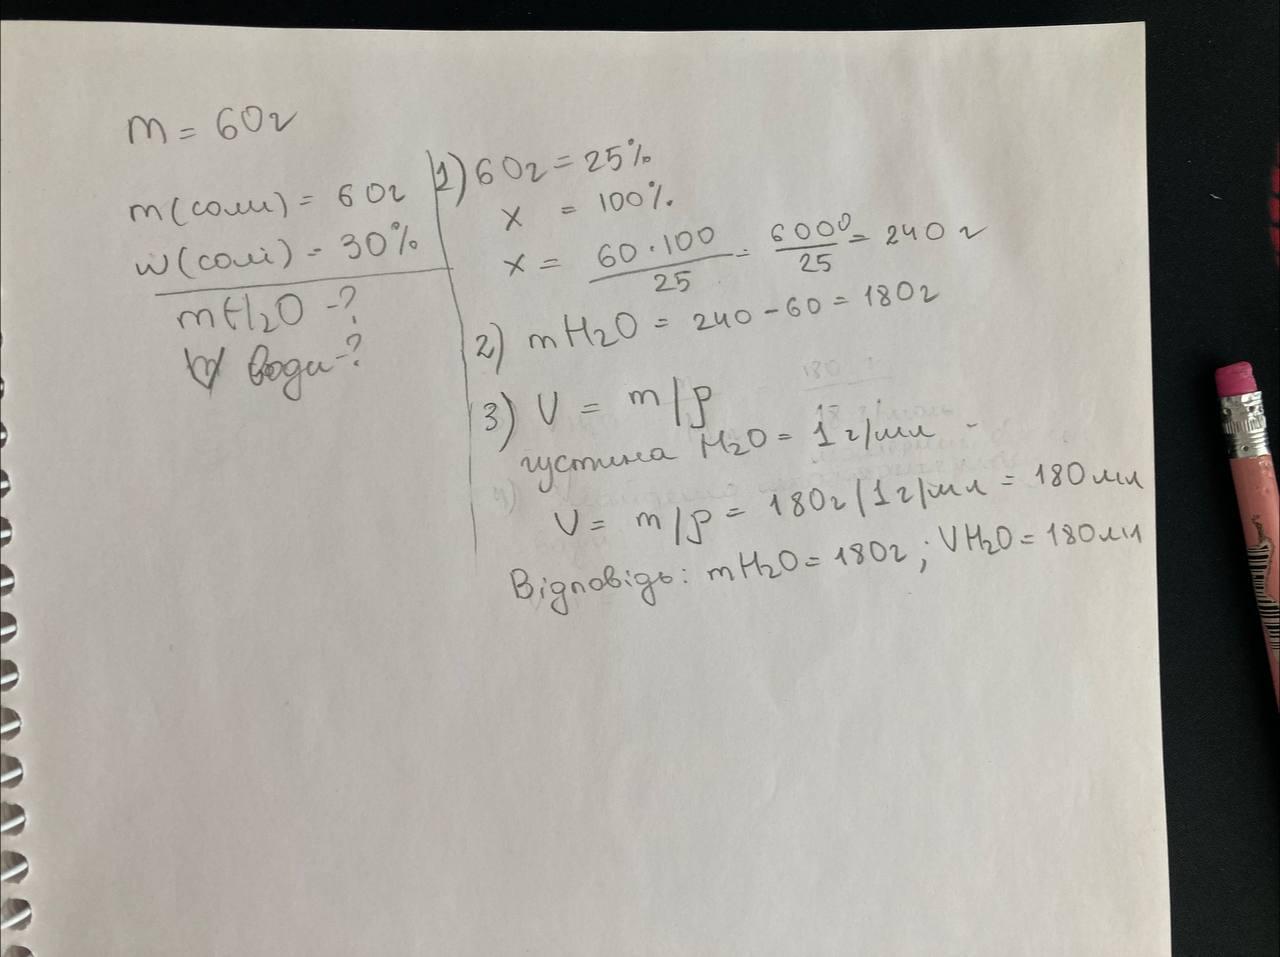 m = 60г
m(соли) = 60г
w(солі) = 30%
mH2O -?
V води -?
1) 60г = 25%
x = 100%
x = 60·100/25 = 6000/25 = 240 г
2) mH2O = 240 - 60 = 180г
3) V = m/ρ
густина H2O = 1 г/мл
V = m/ρ = 180г/1г/мл = 180мл
Відповідь: mH2O = 180г; VH2O = 180мл